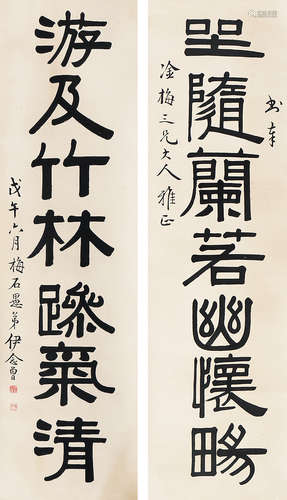 書奉
坐隨蘭若幽懷暢
淦梅三兄大人雅正
游及竹林氣清
戊午六月梅石愚弟伊念曾